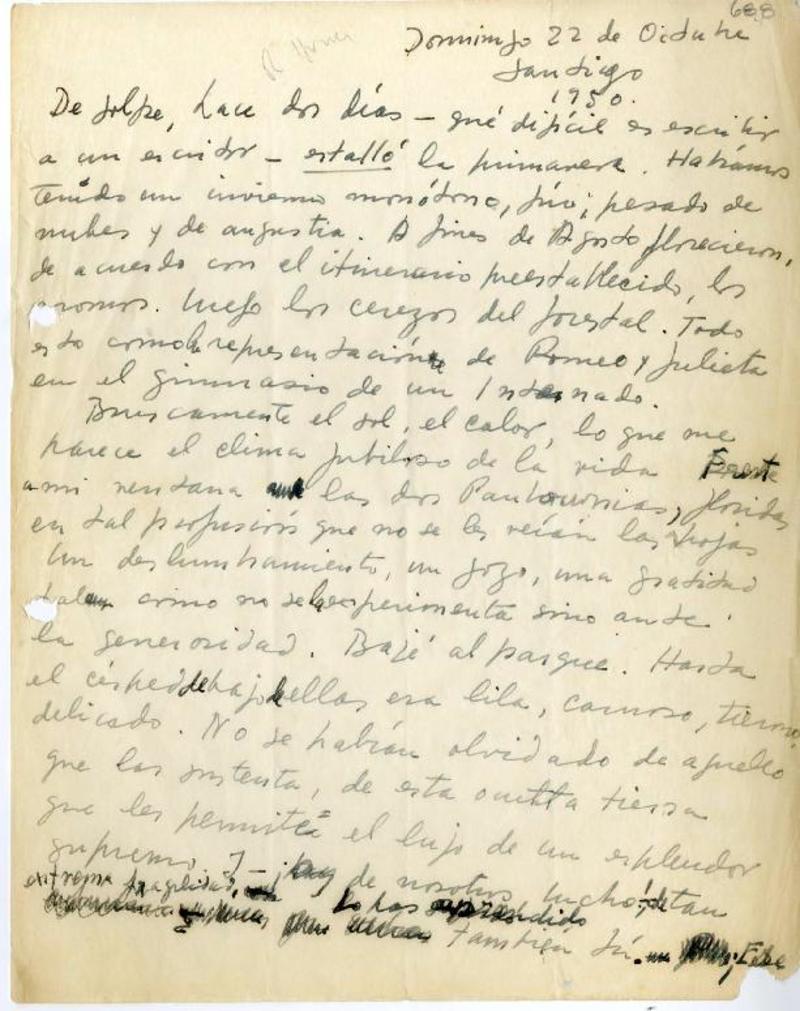 688
Domingo 22 de Octubre
Santiago
1950.
De golpe, hace dos días – qué difícil es escribir
a un escritor – estalló la primavera. Habíamos
tenido un invierno monótono, frío, pesado de
nubes y de angustia. A fines de Agosto florecieron,
de acuerdo con el itinerario preestablecido, los
aromos. Luego los cerezos del forestal. Todo
esto como la representación de Romeo y Julieta
en el gimnasio de un Internado.
Bruscamente el sol, el calor, lo que me
parece el clima jubiloso de la vida Frente
a mi ventana las dos Paulownias, floridas
en tal profusión que no se les veían las hojas
Un deslumbramiento, un gozo, una gratitud
tal como no se experimenta sino ante
la generosidad. Bajé al parque. Hasta
el césped debajo de ellas era lila, carnoso, tierno,
delicado. No se habían olvidado de aquello
que las sustenta, de esta oculta tierra
que les permite el lujo de un esplendor
supremo y – de nosotros mucho, de tan
extrema fragilidad,
lo has aprendido
también tú.